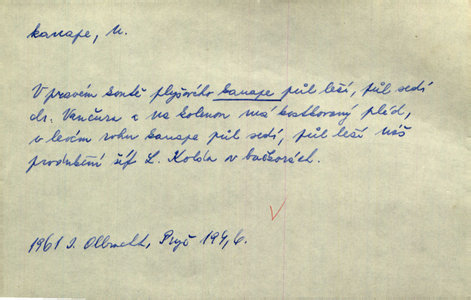 kanape, n.
V pravém koutě plyšového kanape půl leží, půl sedí
dr. Vančura a na kolenou má kostkovaný pléd,
v levém rohu kanape půl sedí, půl leží náš
produkční šéf L. Kolda v bačkorách.
1961 I. Olbracht, 194,6.